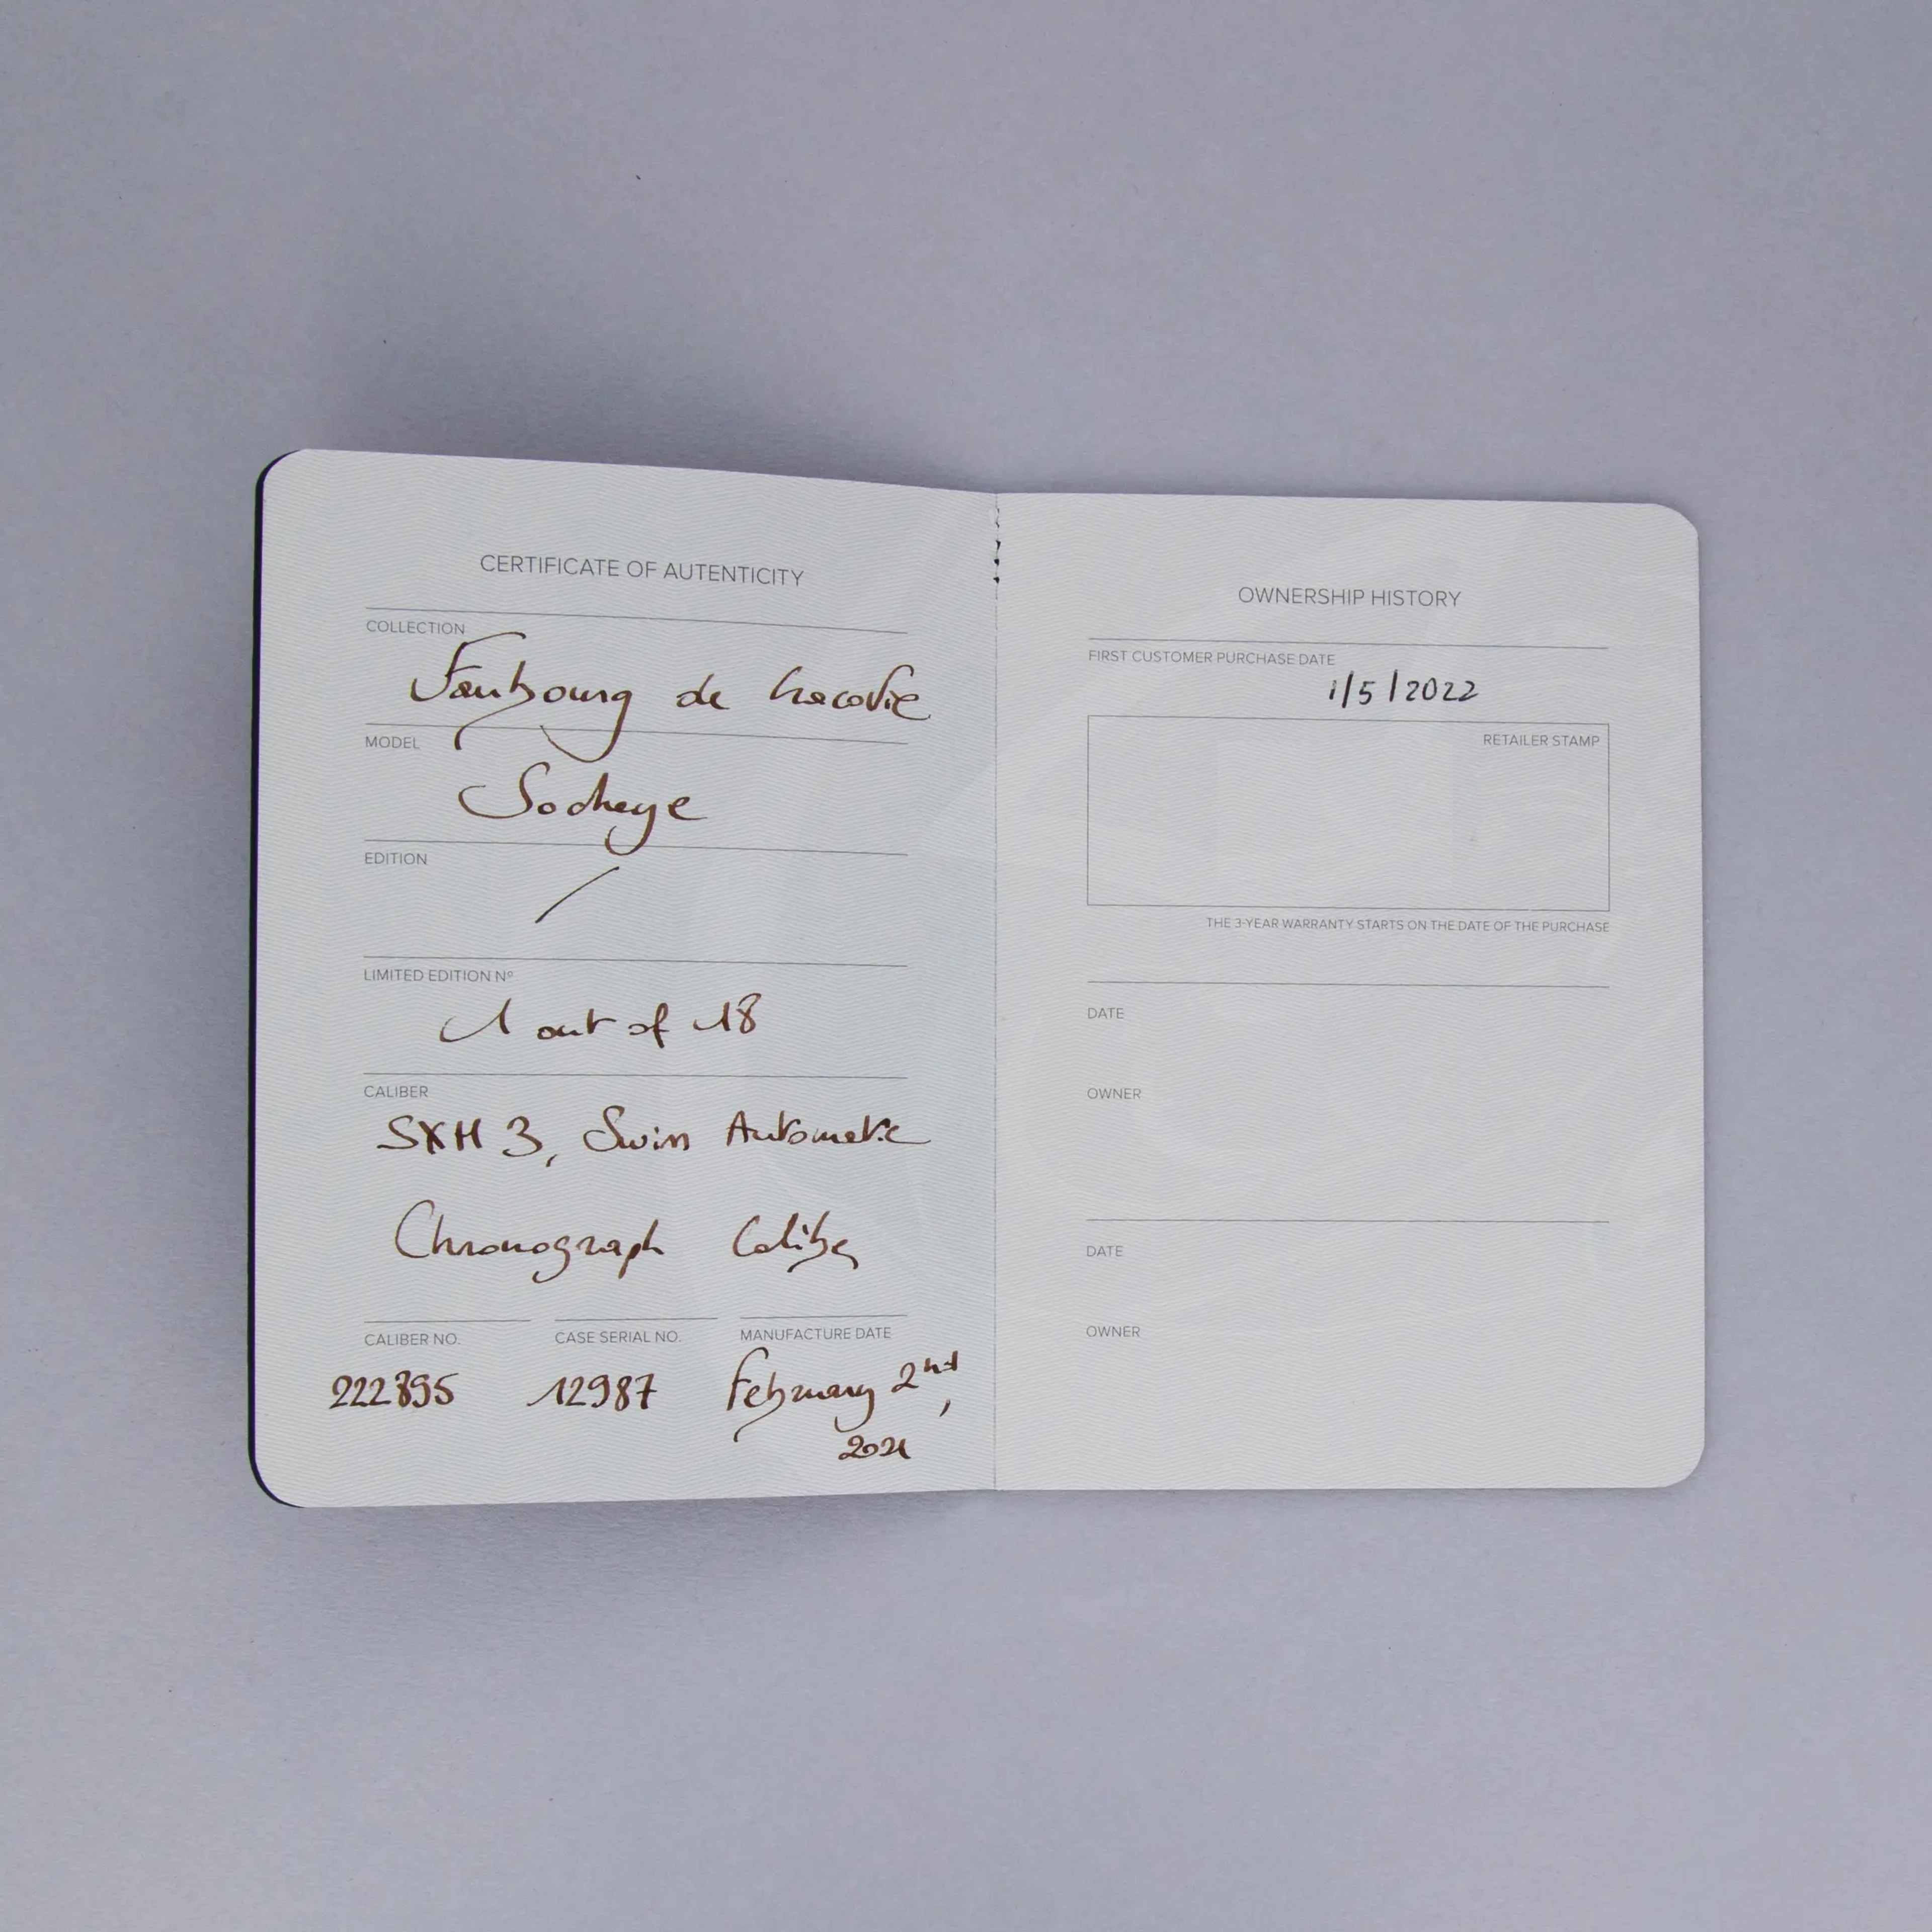 CERTIFICATE OF AUTENTICITY
COLLECTION
Faubourg de Cracovie
MODEL
EDITION
/
LIMITED EDITION Nº
1 out of 18
CALIBER
SXH3, Swiss Automatic
Chronograph Caliber
CALIBER NO.
222895
CASE SERIAL NO.
12987
MANUFACTURE DATE
February 2nd,
2021
OWNERSHIP HISTORY
FIRST CUSTOMER PURCHASE DATE
1/5/2022
RETAILER STAMP
THE 3-YEAR WARRANTY STARTS ON THE DATE OF THE PURCHASE
DATE
OWNER
DATE
OWNER